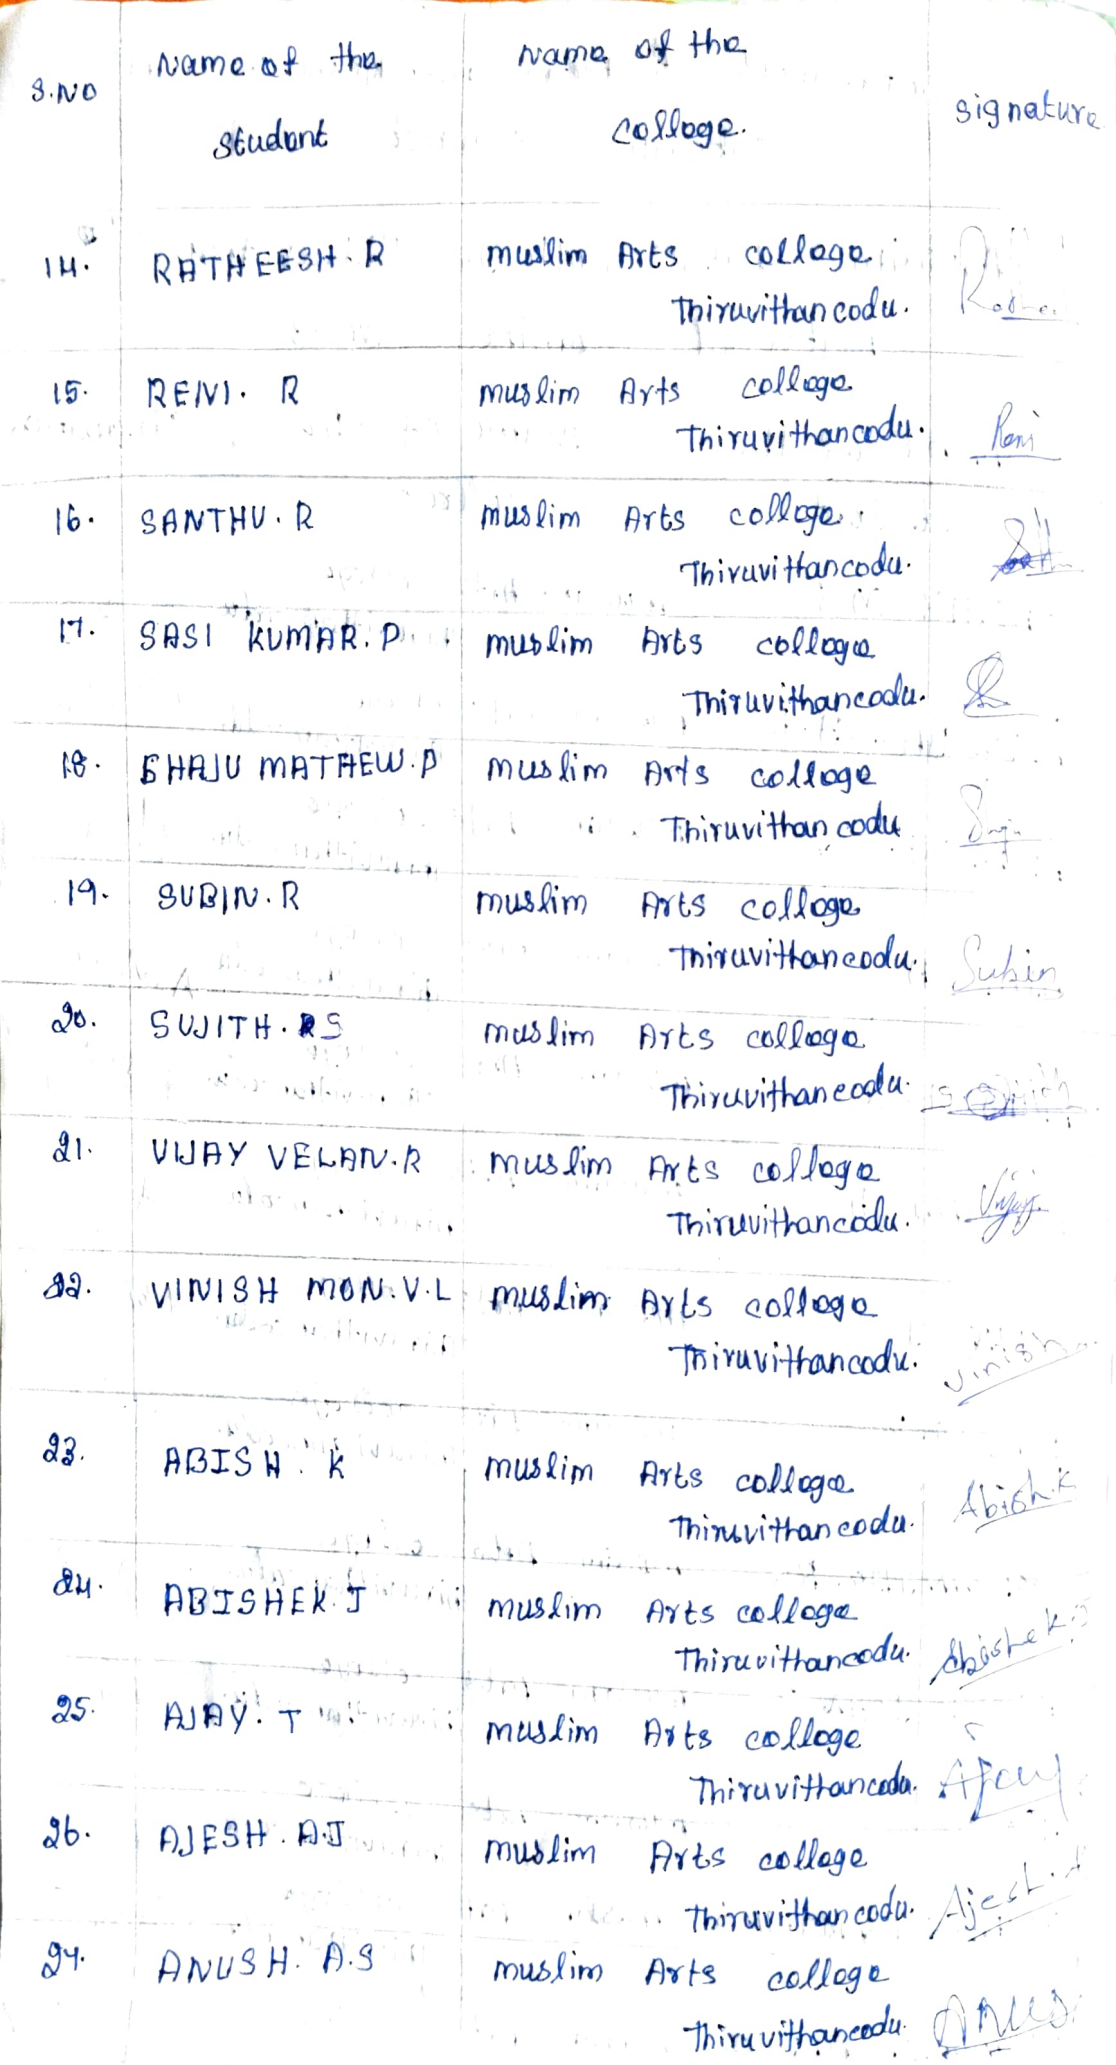 S.NO Name of the Student Name of the College. Signature
14. RATHEESH. R Muslim Arts College
Thiruvithancodu.
15. RENI. R Muslim Arts College
Thiruvithancodu. Reni
16. SANTHU. R Muslim Arts College
Thiruvithancodu.
17. SASI KUMAR. P Muslim Arts College
Thiruvithancodu.
18. SHAJU MATHEW. P Muslim Arts College
Thiruvithancodu
19. SUBIN. R Muslim Arts College
Thiruvithancodu. Subin
20. SUJITH. S Muslim Arts College
Thiruvithancodu.
21. VIJAY VELAN. R Muslim Arts College
Thiruvithancodu. Vijay
22. VINISH MON. V. L Muslim Arts College
Thiruvithancodu. Vinish
23. ABISH. K Muslim Arts College
Thiruvithancodu. Abish.K
24. ABISHEK. J Muslim Arts College
Thiruvithancodu. Abishek.J
25. AJAY. T Muslim Arts College
Thiruvithancodu. Ajay
26. AJESH. A.J Muslim Arts College
Thiruvithancodu. Ajesh.A
27. ANUSH. A.S Muslim Arts College
Thiruvithancodu. Anus